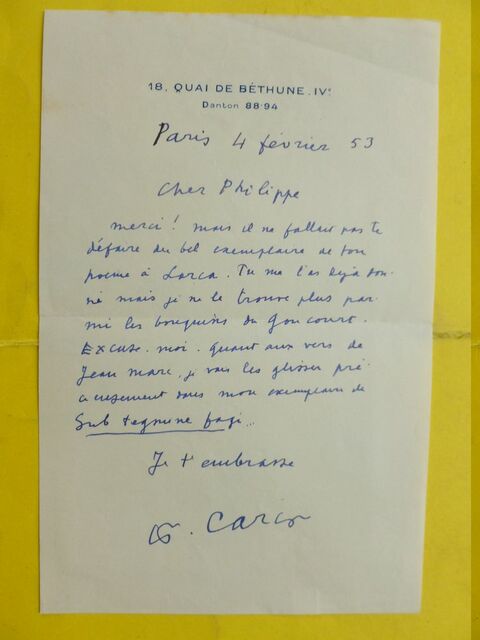 18, QUAI DE BÉTHUNE. IVᵉ
Danton 88-94
Paris 4 février 53
Cher Philippe
merci ! mais il ne fallait pas te
défaire du bel exemplaire de ton
poème à Lorca. Tu me l'as déjà don-
né mais je ne le trouve plus par-
mi les bouquins du Goncourt.
Excuse-moi. Quant aux vers de
Jean Marc, je vais les glisser pré-
cieusement dans mon exemplaire de
Sub tegmine fagi...
Je t'embrasse
F. Carco